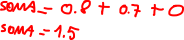 SOMA = 0.8 + 0.7 + 0
SOMA = 1.5